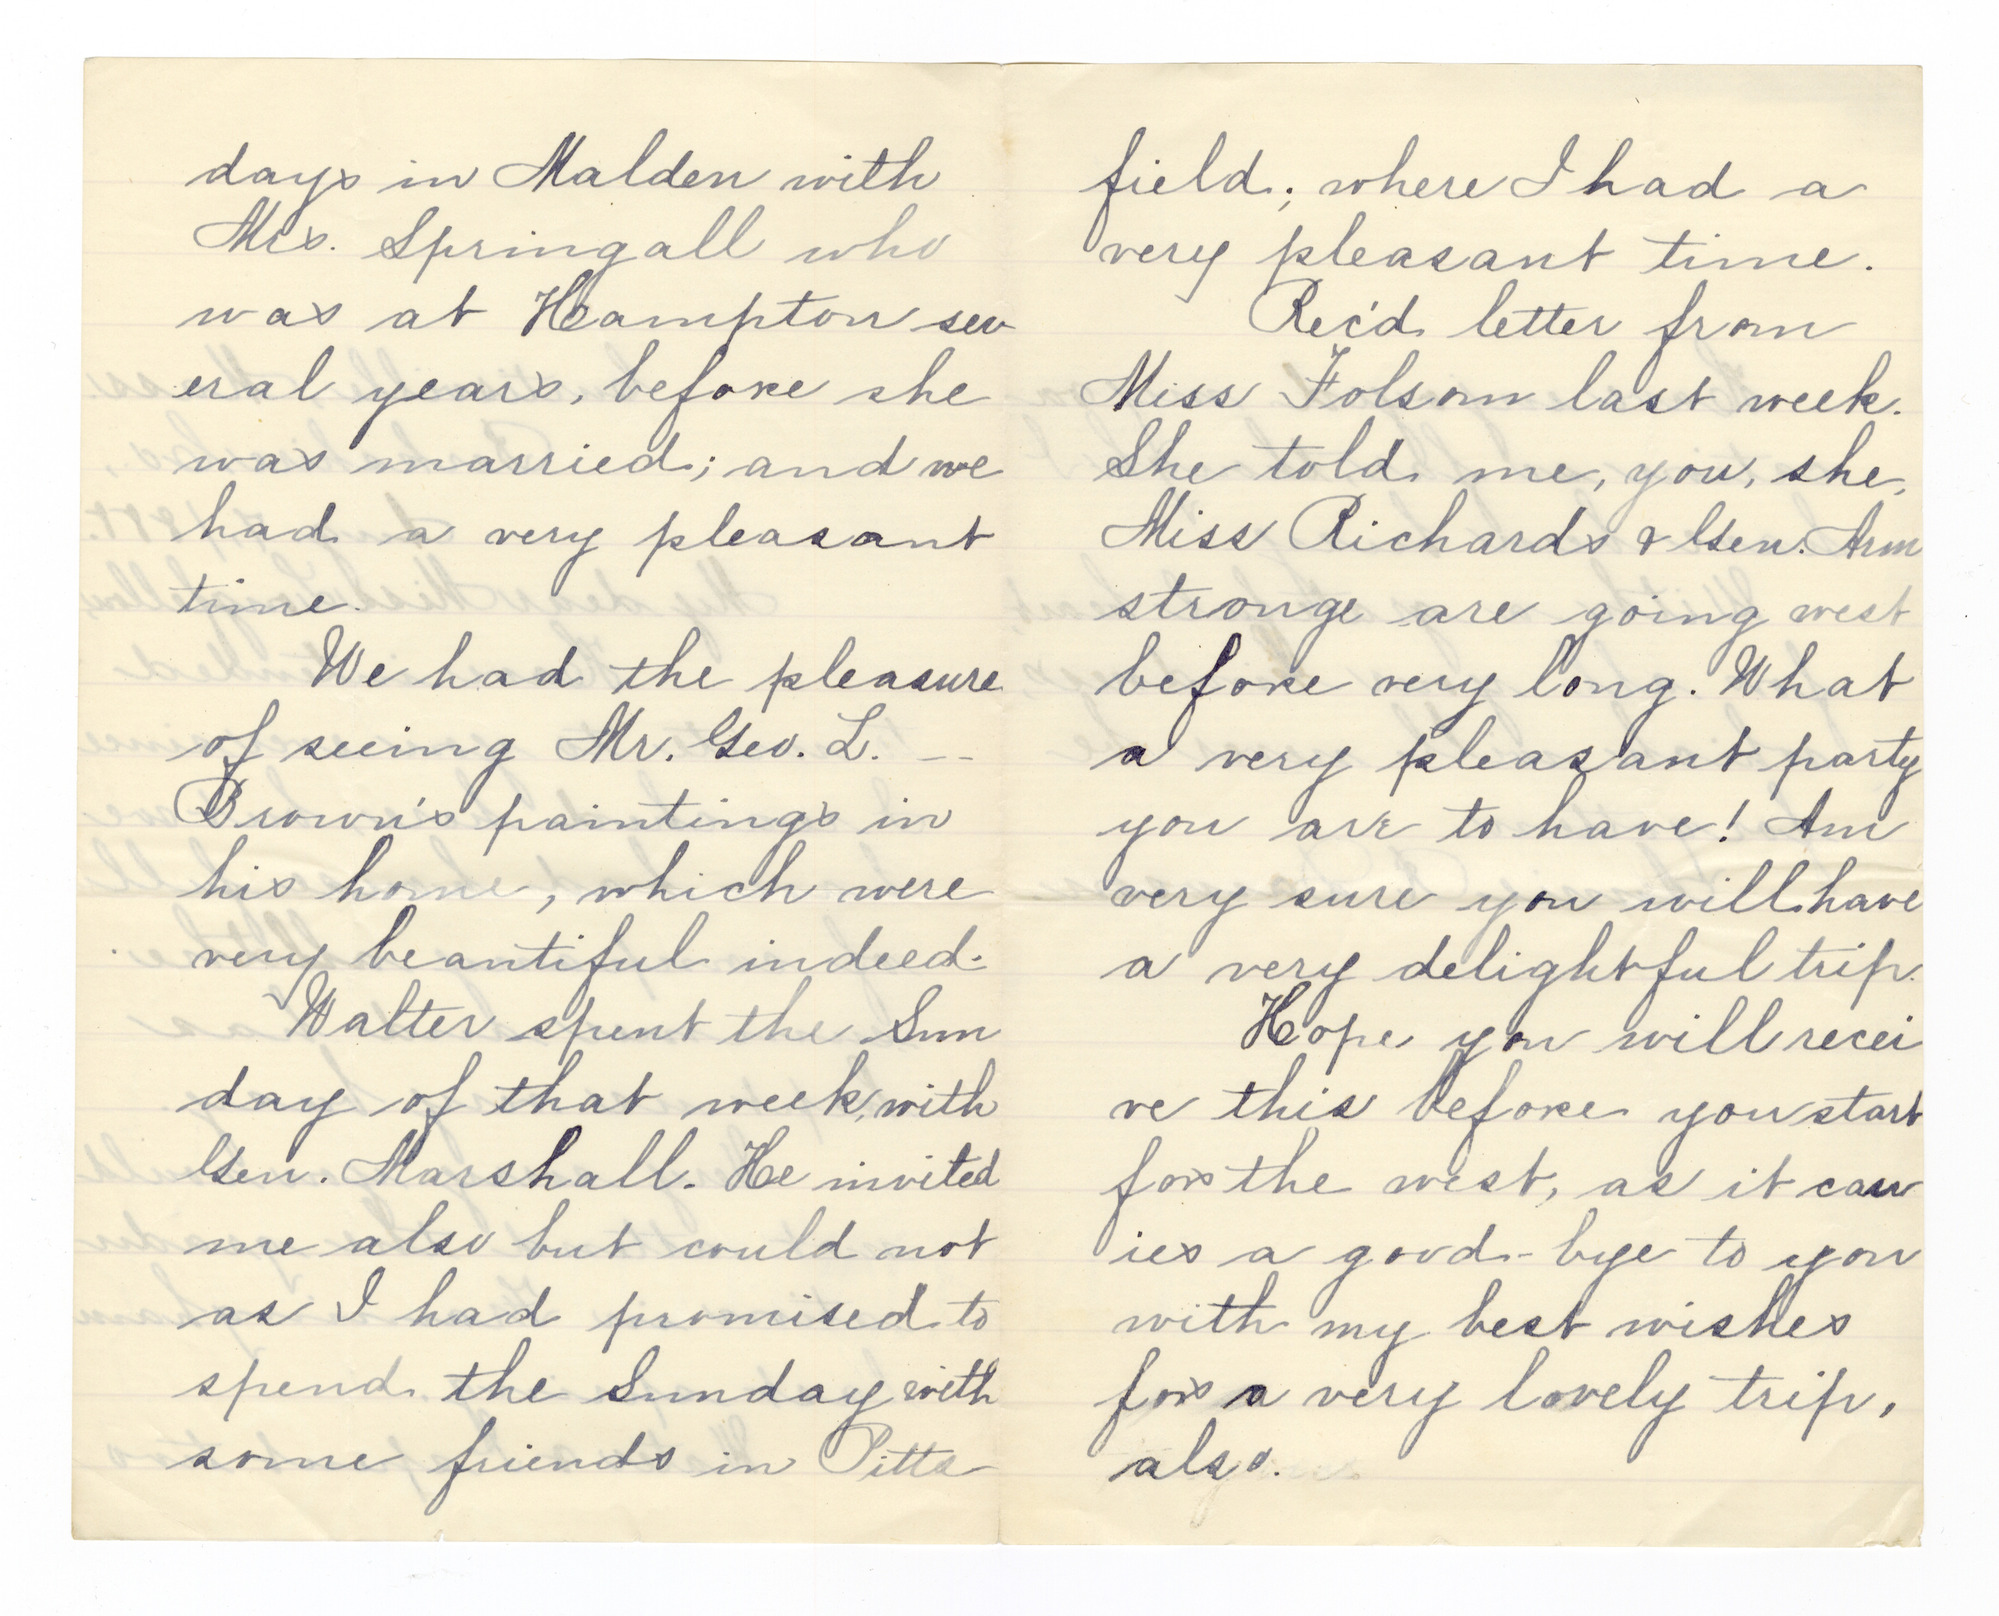 days in Malden with
Mrs. Springall who
was at Hampton sev
eral years, before she
was married; and we
had a very pleasant
time.
We had the pleasure
of seeing Mr. Geo. L. --
Brown's paintings in
his home, which were
very beautiful indeed.
Walter spent the Sun
day of that week, with
Gen. Marshall. He invited
me also but could not
as I had promised to
spend the Sunday with
some friends in Pitts
field; where I had a
very pleasant time.
Rec'd letter from
Miss Folsom last week.
She told me, you, she,
Miss Richards & Gen. Arm
strong are going west
before very long. What
a very pleasant party
you are to have! Am
very sure you will have
a very delightful trip.
Hope you will recei
ve this before you start
for the west, as it carr
ies a good-bye to you
with my best wishes
for a very lovely trip,
also.